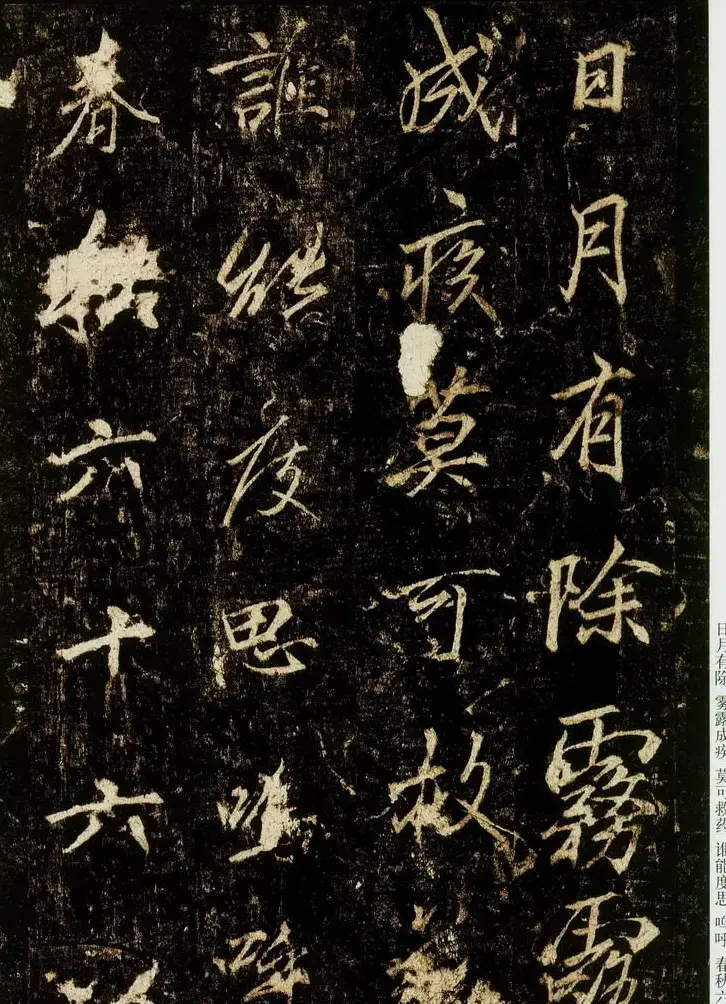 日月有除霧露
成疾莫可救
誰能度思嗚呼
春秋六十六
日月有除 雾露成疾 莫可救药 谁能度思 呜呼 春秋